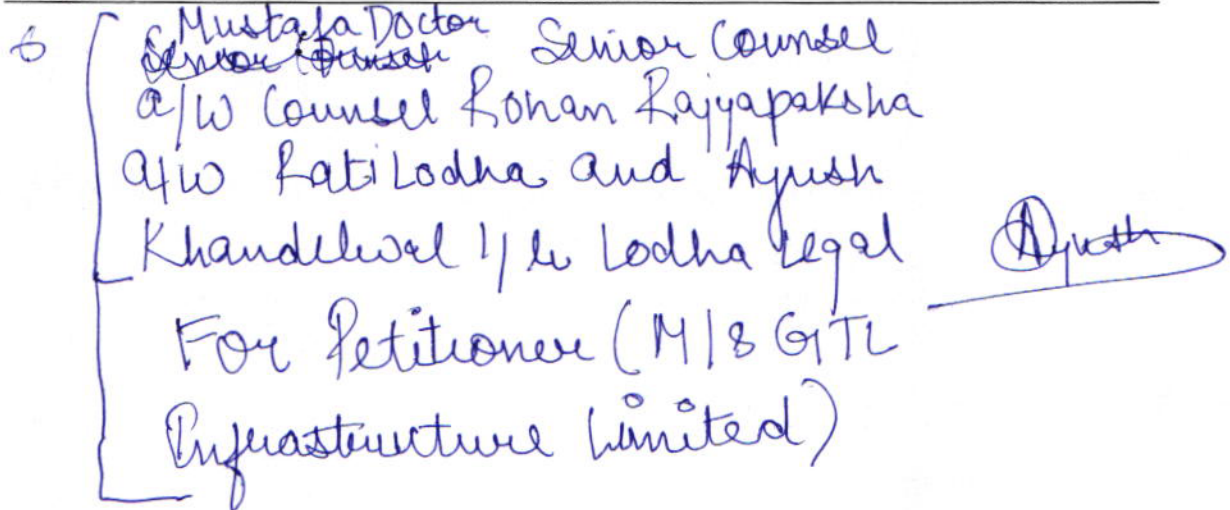 6 Mustafa Doctor Senior Counsel
a/w Counsel Rohan Rajyapaksha
a/w Rati Lodha and Ayush
Khandelwal i/b Lodha Legal
Ayush
For Petitioner (M/s GTL
Infrastructure Limited)